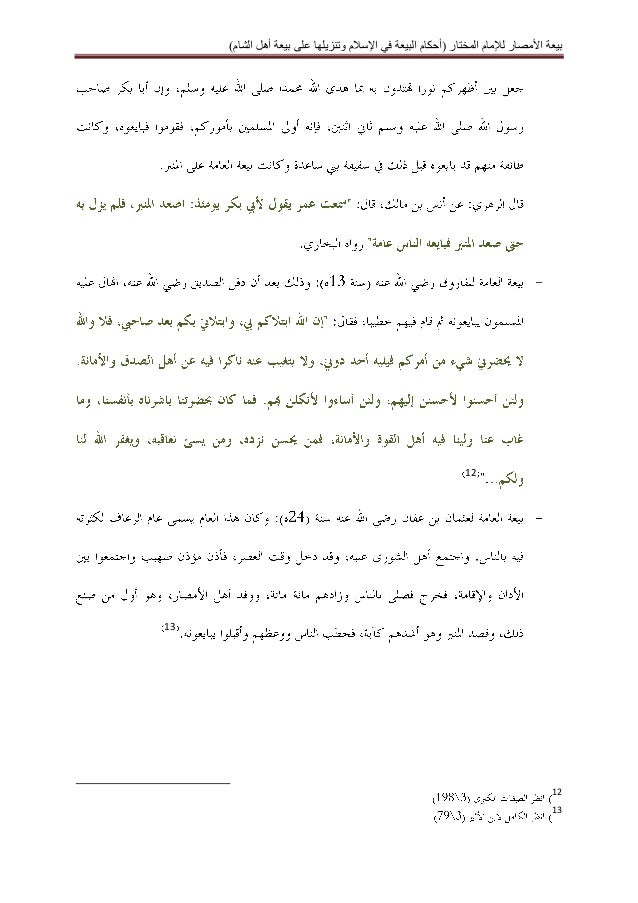 بيعة الأمصار للإمام المختار (أحكام البيعة في الإسلام وتنزيلها على بيعة أهل الشام)
جعل بين أظهركم نورا تهتدون به بما هدى الله محمدا صلى الله عليه وسلم، وإن أبا بكر صاحب
رسول الله صلى الله عليه وسلم ثاني اثنين، فإنه أولى المسلمين بأموركم، فقوموا فبايعوه، وكانت
طائفة منهم قد بايعوه قبل ذلك في سقيفة بني ساعدة وكانت بيعة العامة على المنبر.
قال الزهري: عن أنس بن مالك، قال: "سمعت عمر يقول لأبي بكر يومئذ: اصعد المنبر، فلم يزل به
حتى صعد المنبر فبايعه الناس عامة" رواه البخاري.
- بيعة العامة للفاروق رضي الله عنه (سنة 13ه): وذلك بعد أن دفن الصديق رضي الله عنه، انهال عليه
المسلمون يبايعونه ثم قام فيهم خطيبا، فقال: "إن الله ابتلاكم بي، وابتلاني بكم بعد صاحبي، فلا والله
لا يحضرني شيء من أمركم فيليه أحد دوني، ولا يتغيب عنه ناكرا فيه عن أهل الصدق والأمانة.
ولئن أحسنوا لأحسنن إليهم، ولئن أساءوا لأنكلن بهم. فما كان بحضرتنا باشرناه بأنفسنا، وما
غاب عنا ولينا فيه أهل القوة والأمانة، فمن يحسن نزده، ومن يسئ نعاقبه، ويغفر الله لنا
ولكم..."(12)
- بيعة العامة لعثمان بن عفان رضي الله عنه سنة (24ه): وكان هذا العام يسمى عام الرعاف لكثرته
فيه بالناس. واجتمع أهل الشورى عليه، وقد دخل وقت العصر، فأذن مؤذن صهيب واجتمعوا بين
الأذان والإقامة، فخرج فصلى بالناس وزادهم مائة مائة، ووفد أهل الأمصار، وهو أول من صنع
ذلك، وقصد المنبر وهو أشدهم كآبة، فخطب الناس ووعظهم وأقبلوا يبايعونه.(13)
12) انظر الطبقات الكبرى (3\198)
13) انظر الكامل لابن الأثير (3\79)